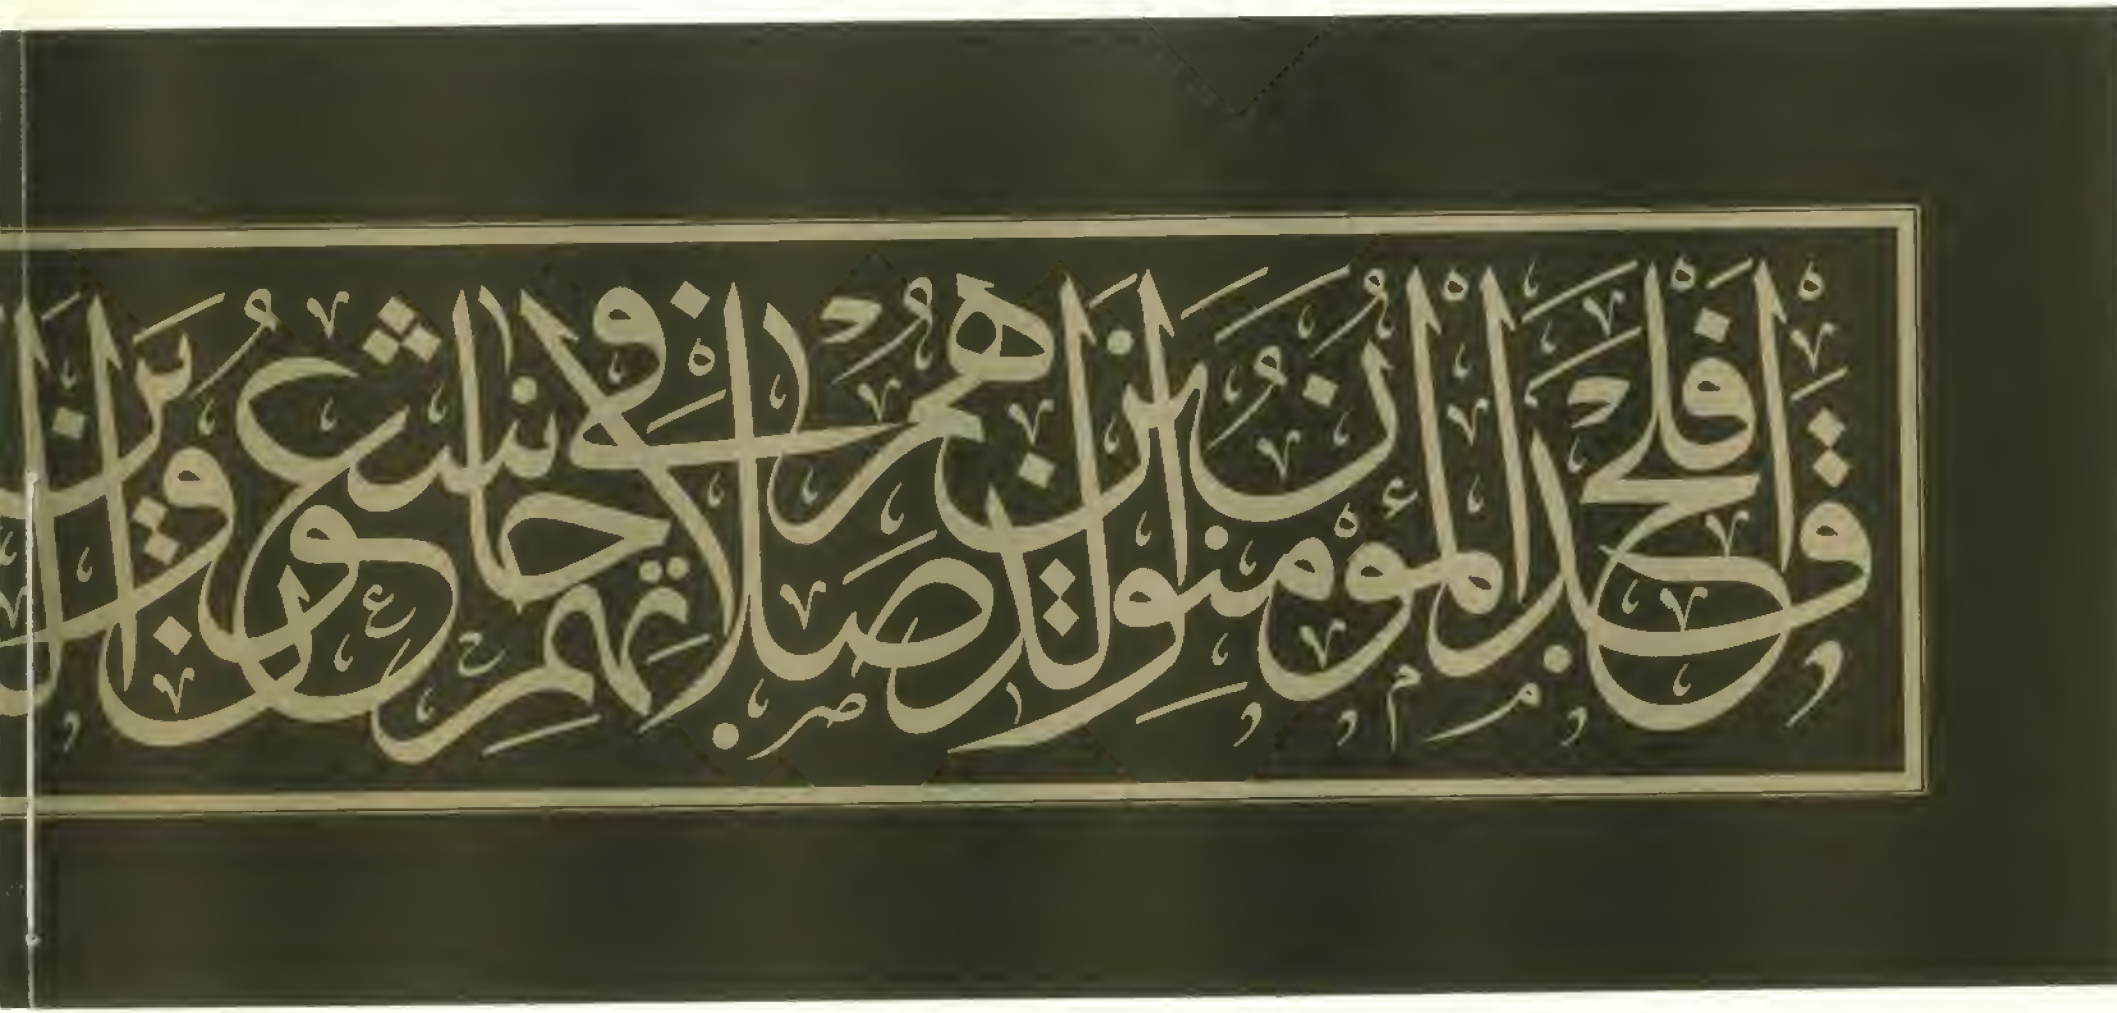 قَدْ أَفْلَحَ الْمُؤْمِنُونَ الَّذِينَ هُمْ فِي صَلَاتِهِمْ خَاشِعُونَ